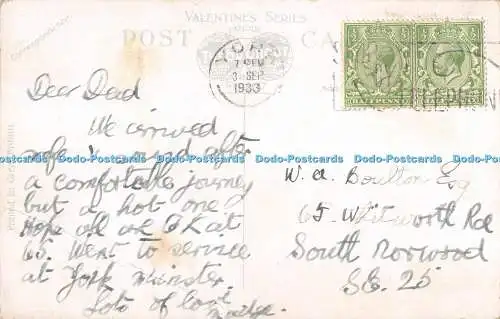 VALENTINE'S SERIES
POST CA
Correspondence
YORK
7 PM
3 SEP
1933
Dear Dad
We arrived
safe & sound after
a comfortable journey
but a hot one
Hope all are O.K at
65. Went to service
at York Minster.
Lots of love
Madge.
W. A. Boulton Esq
65. Whitworth Rd
South Norwood
S.E. 25
Dodo-Postcards Dodo-Postcards Dodo-Postcards Dodo-Postcards Dodo-Postcards